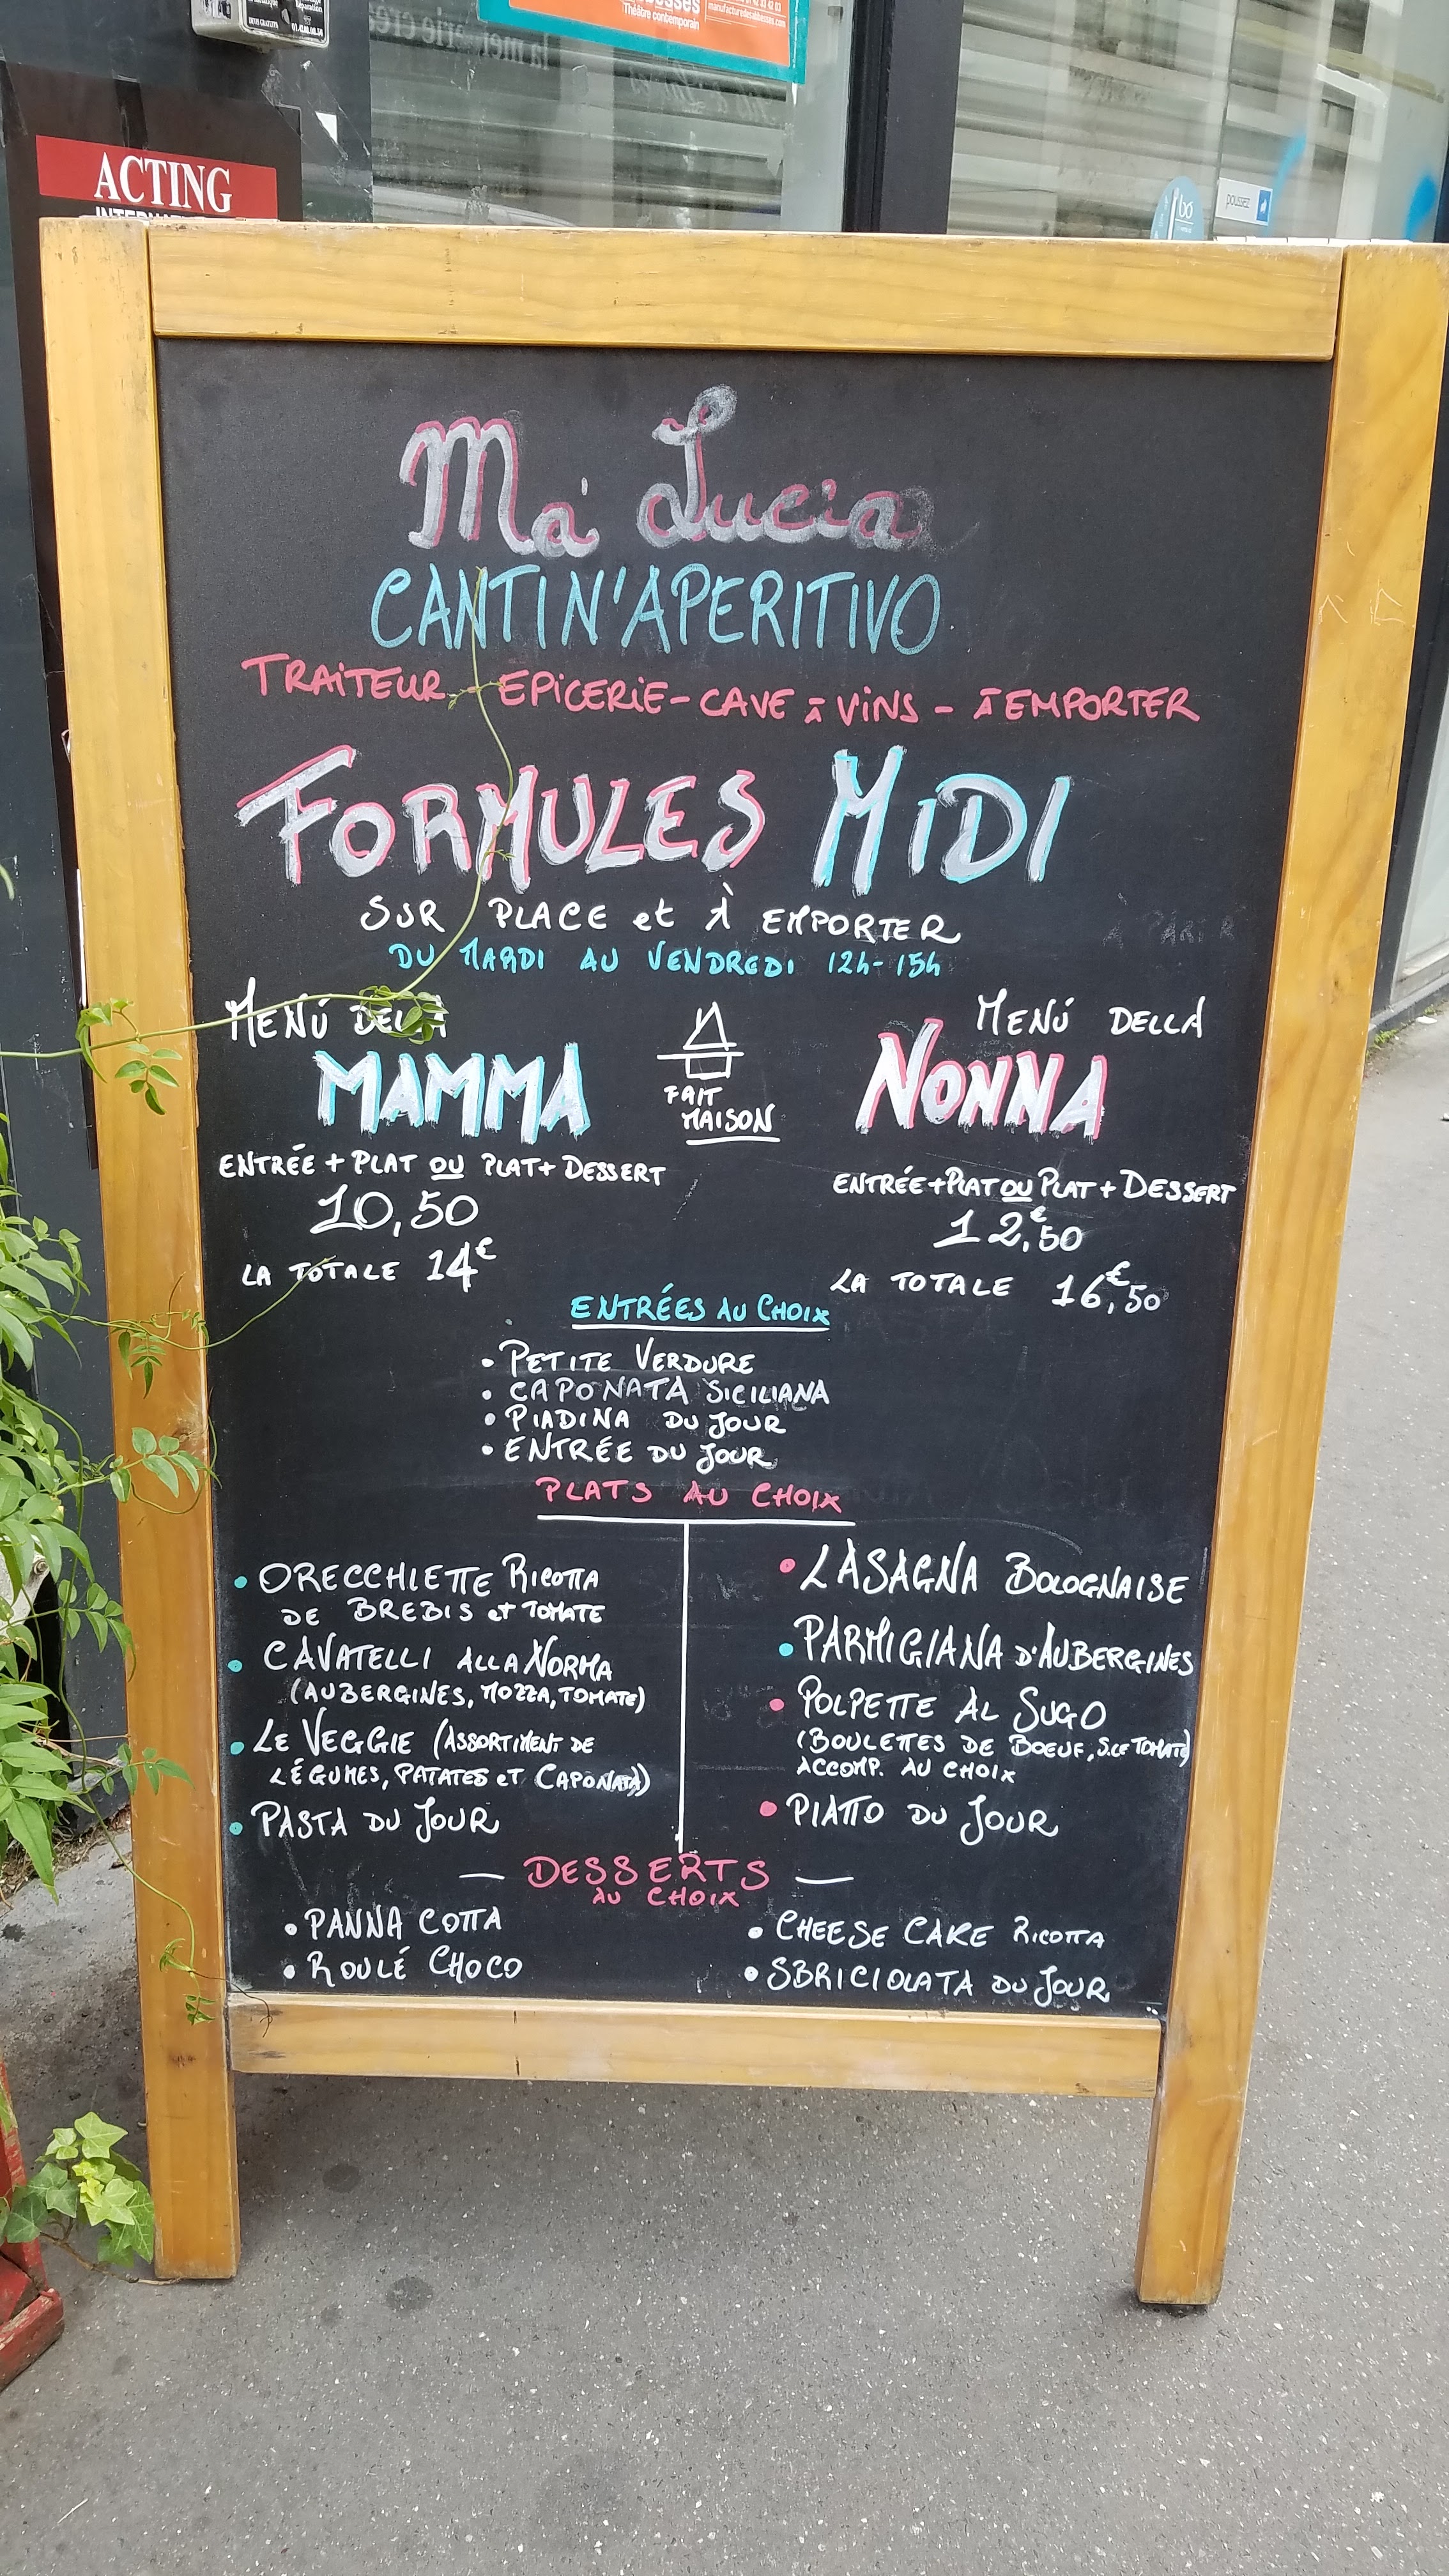 Théâtre contemporain
manufacturedesabbesses.com
ACTING
poussez
bo
Ma' Lucia
CANTIN'APERITIVO
TRAITEUR - EPICERIE - CAVE à VINS - à EMPORTER
FORMULES MIDI
SUR PLACE et À EMPORTER
DU MARDI AU VENDREDI 12h-15h
MENÚ DELLA
MAMMA
ENTRÉE + PLAT OU PLAT + DESSERT
10,50
LA TOTALE 14€
FAIT
MAISON
MENÚ DELLA
NONNA
ENTRÉE + PLAT OU PLAT + DESSERT
12,€50
LA TOTALE 16,€50
ENTRÉES AU CHOIX
• PETITE VERDURE
• CAPONATA SICILIANA
• PIADINA DU JOUR
• ENTRÉE DU JOUR
PLATS AU CHOIX
• ORECCHIETTE RICOTTA
DE BREBIS et TOMATE
• CAVATELLI ALLA NORMA
(AUBERGINES, MOZZA, TOMATE)
• LE VEGGIE (ASSORTIMENT DE
LÉGUMES, PATATES et CAPONATA)
• PASTA DU JOUR
• LASAGNA BOLOGNAISE
• PARMIGIANA D'AUBERGINES
• POLPETTE AL SUGO
(BOULETTES DE BOEUF, S.CE TOMATE)
ACCOMP. AU CHOIX
• PIATTO DU JOUR
— DESSERTS —
AU CHOIX
• PANNA COTTA
• ROULÉ CHOCO
• CHEESE CAKE RICOTTA
• SBRICIOLATA DU JOUR